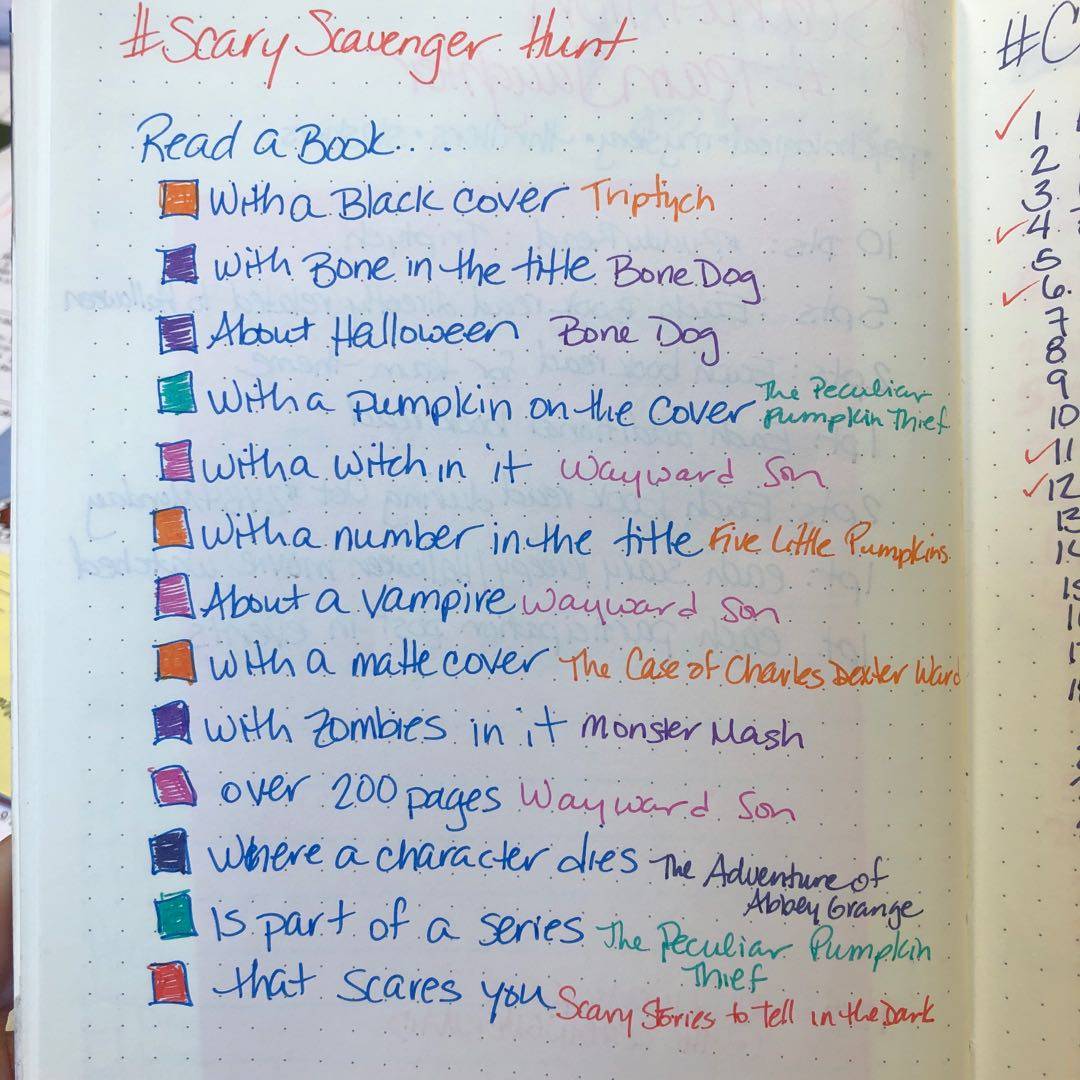 #Scary Scavenger Hunt
Read a Book....
With a Black cover Triptych
with Bone in the title Bone Dog
About Halloween Bone Dog
With a pumpkin on the cover The Peculiar
Pumpkin Thief
with a witch in it Wayward Son
With a number in the title Five Little Pumpkins
About a vampire Wayward Son
with a matte cover The Case of Charles Dexter Ward
with Zombies in it Monster Mash
over 200 pages Wayward Son
Where a character dies The Adventure of
Abbey Grange
Is part of a series The Peculiar Pumpkin
Thief
that scares you Scary Stories to Tell in the Dark
#C
1
2
3
4
5
6.
7
8
9
10
11
12
13
14
15